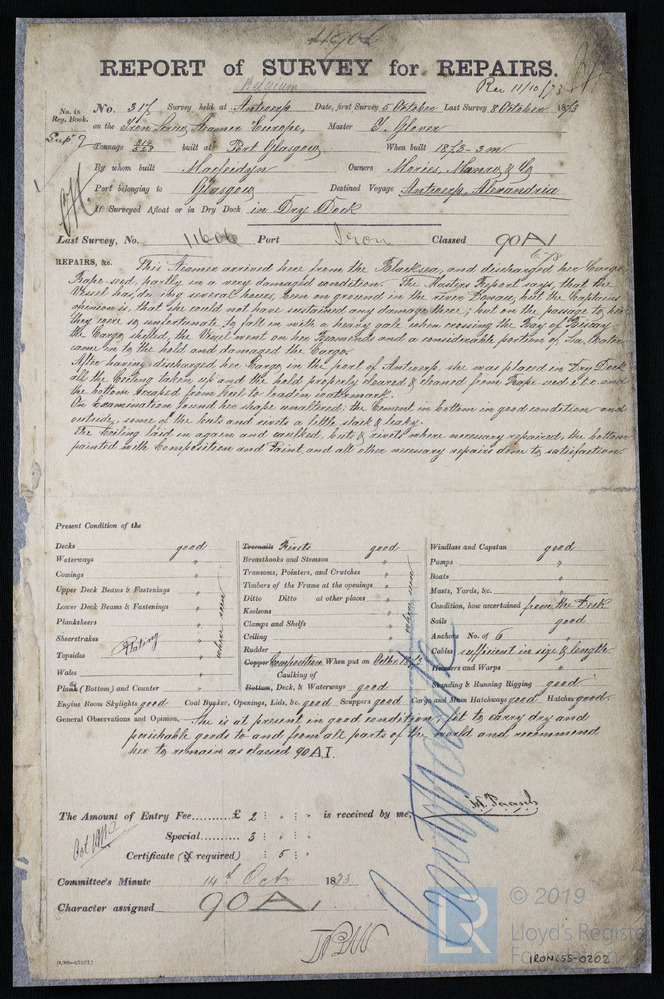 4906
REPORT of SURVEY for REPAIRS.
Belgium
Rec 11/10/73
No. in Reg. Book.
No. 317 Survey held at Antwerp Date, first Survey 5 October Last Survey 8 October 1873
Supt 9 on the Iron Screw Steamer Europe, Master J. Glover
Tonnage built at Port Glasgow When built 1873-3m
By whom built Owners Munro & Co
Port belonging to Glasgow Destined Voyage Antwerp, Alexandria
If Surveyed Afloat or in Dry Dock in Dry Dock
Last Survey, No. 11606 Port Iron Classed 90A1
REPAIRS, &c. This Steamer arrived here from the Blacksea, and discharged her Cargo,
Rape-seed, partly in a very damaged condition. The Masters Report says, that the
Vessel has, during several hours, been on ground in the river Donau, but the Captains
opinion is, that she could not have sustained any damage there; but on the passage to here
they were so unfortunate to fall in with a heavy gale when crossing the Bay of Biscay
the Cargo shifted, the Vessel went on her Beamends and a considerable portion of Sea Water
came in to the hold and damaged the Cargo.
After having discharged her Cargo in the port of Antwerp, she was placed in Dry Dock
all the Ceiling taken up and the hold properly cleared & cleaned from Rape-seed etc and
the bottom scraped from keel to loadin watermark.
On Examination found her shape unaltered, the Cement in bottom in good condition and
outside, some of the buts and rivets a little slack & leaky.
The Ceiling laid in again and caulked, buts & rivets where necessary repaired, the bottom
painted with Composition and Paint, and all other necessary repairs done to satisfaction.
Present Condition of the
Decks good
Waterways "
Comings "
Upper Deck Beams & Fastenings "
Lower Deck Beams & Fastenings "
Planksheers "
Sheerstrakes "
Topsides Plating "
Wales "
Plank (Bottom) and Counter "
where seen
Treenails Rivets good
Breasthooks and Stemson "
Transoms, Pointers, and Crutches "
Timbers of the Frame at the openings "
Ditto Ditto at other places "
Keelsons "
Clamps and Shelfs "
Ceiling "
Rudder "
Copper Composition When put on Octbr 1873
Caulking of
Bottom, Deck, & Waterways good
where seen
Windlass and Capstan good
Pumps "
Boats "
Masts, Yards, &c. "
Condition, how ascertained from the Deck
Sails good
Anchors No. of 6 "
Cables sufficient in size & length
Hawsers and Warps "
Standing & Running Rigging good
Engine Room Skylights good Coal Bunker, Openings, Lids, &c. good Scuppers good Cargo and Main Hatchways good Hatches good
General Observations and Opinion, She is at present in good condition, fit to carry dry and
perishable goods to and from all parts of the world and recommend
her to remain as classed 90A1.
The Amount of Entry Fee......... £ 2 : " : " is received by me,
Special......... 3 : " : "
Certificate (if required) : 5 :
Committee's Minute 14th Octr 1873
Character assigned 90A1
© 2019
Lloyd's Register
Foundation
IRON 455-0202